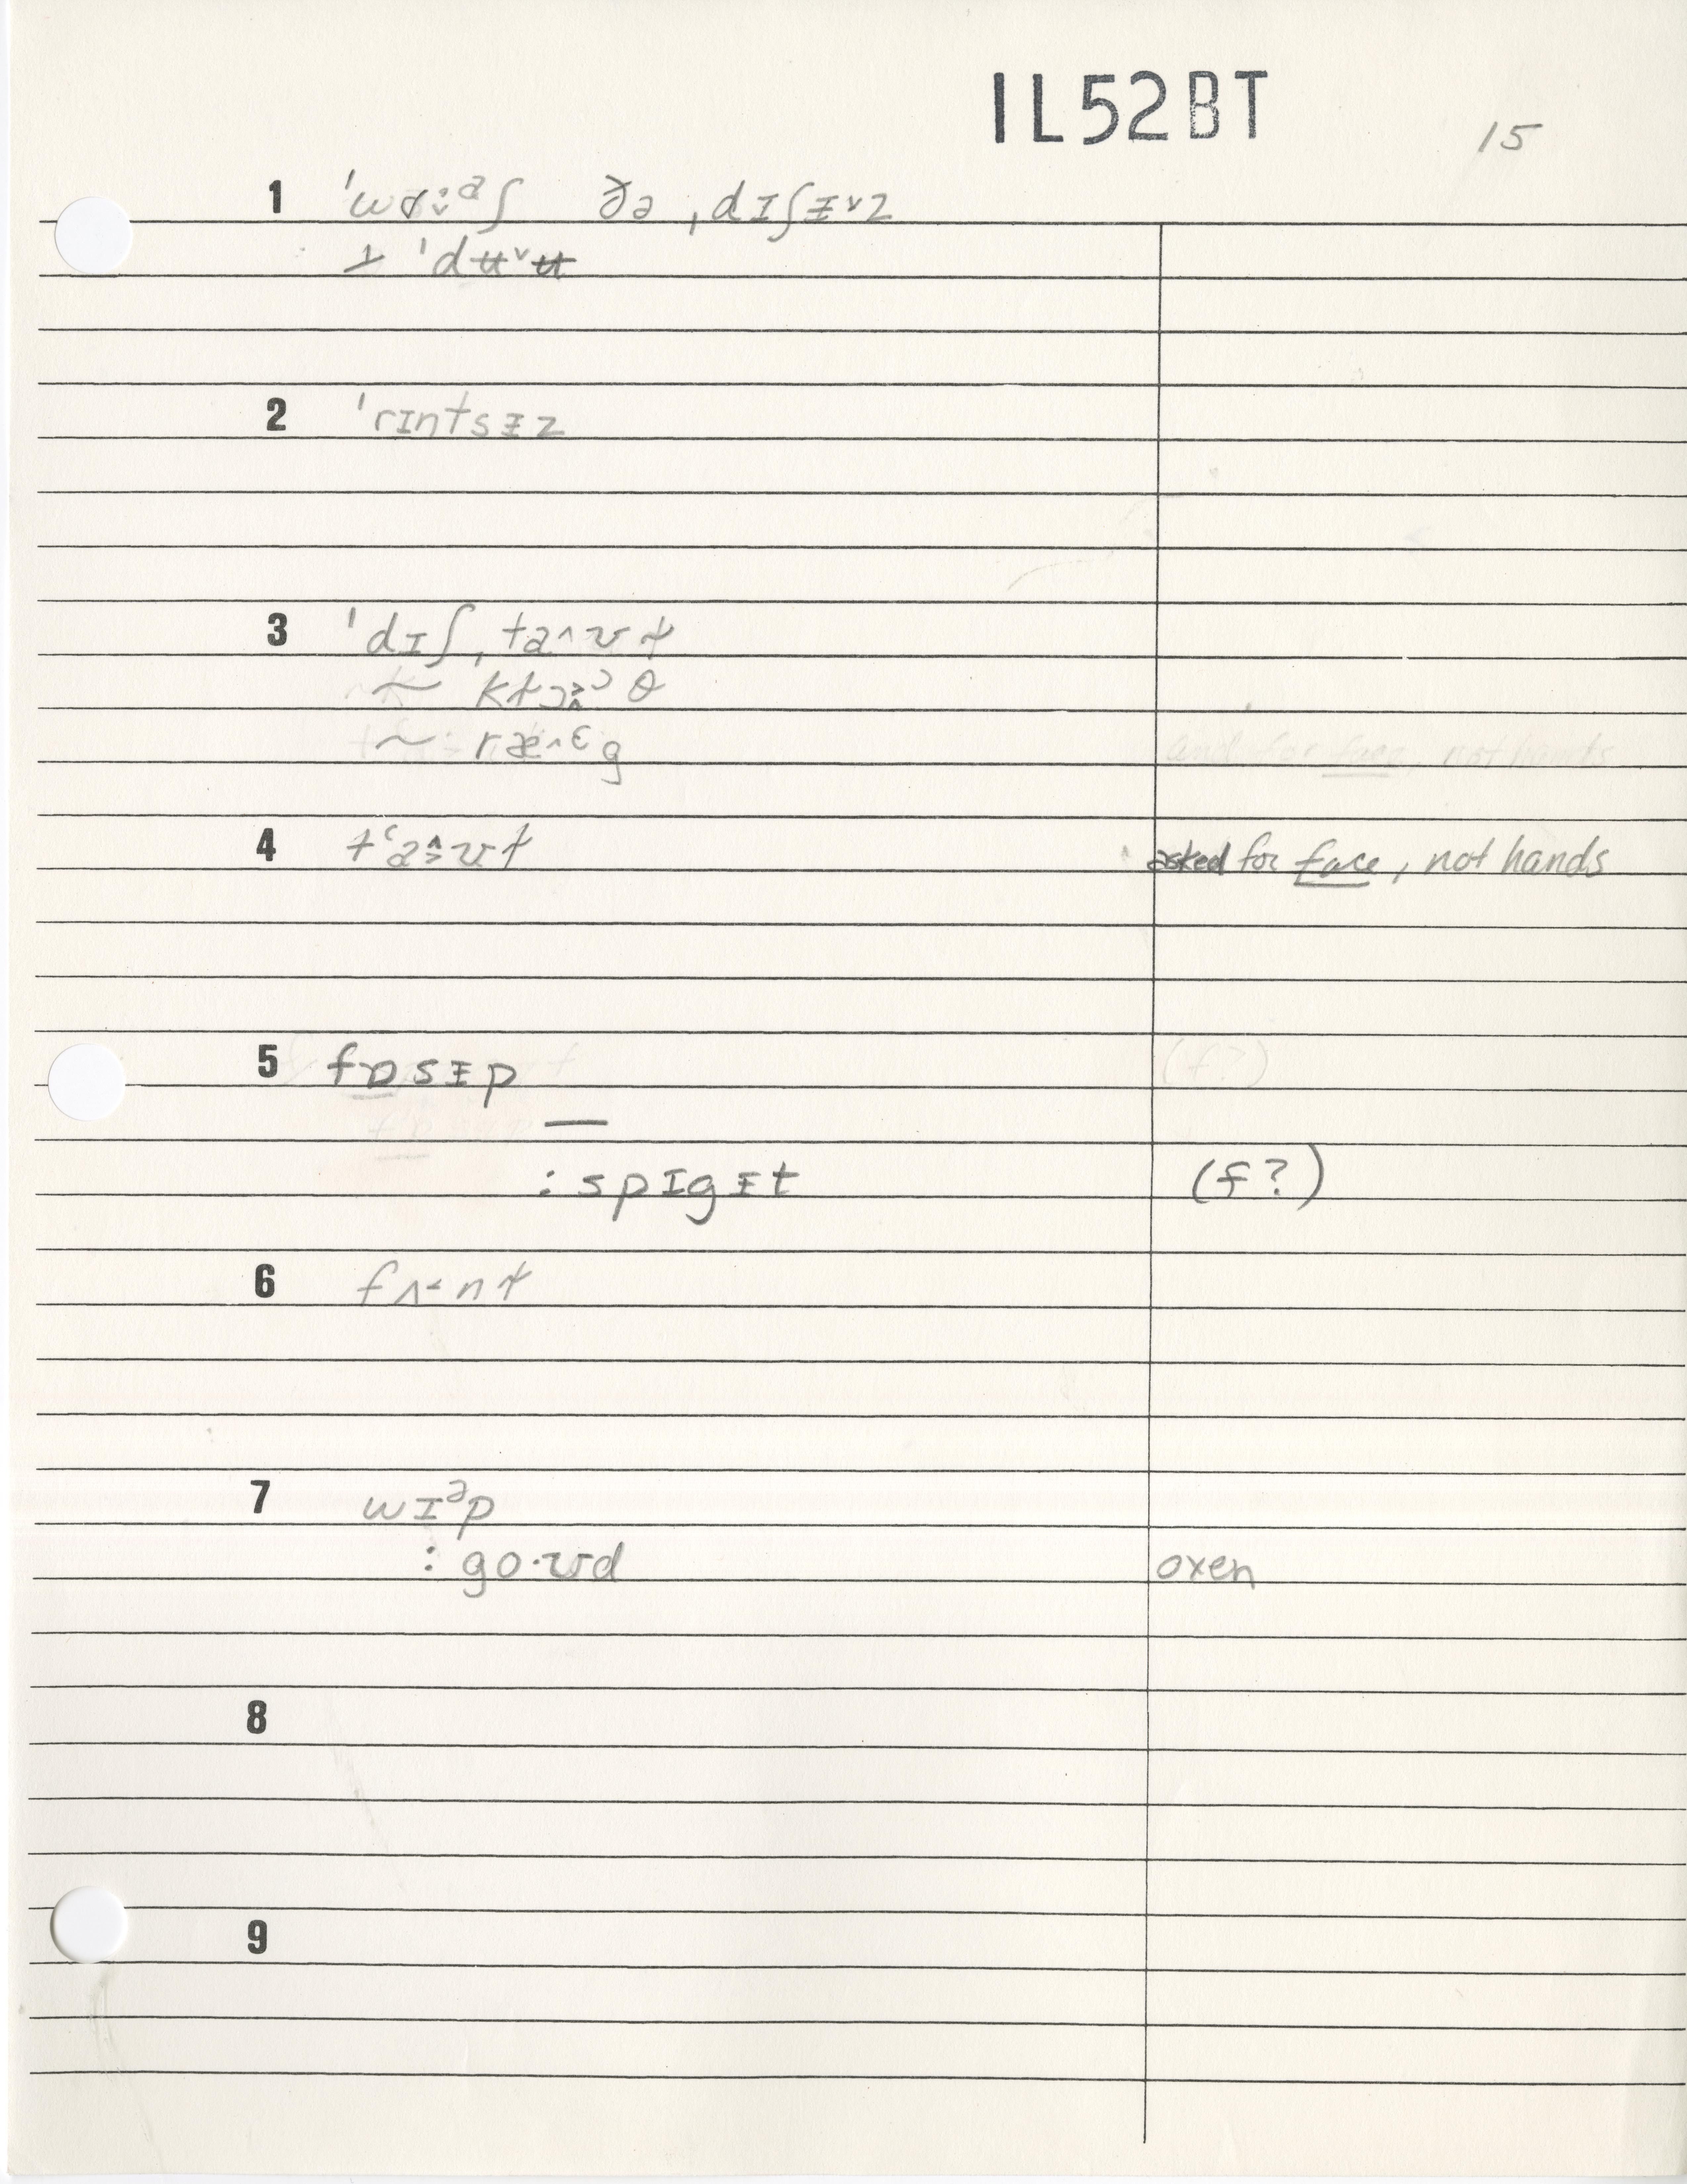 IL52BT
15
1 ˈwɑ:ᵊʃ ðə ˌdɪʃɪ˅z
ˈdʉ˅ʉ
2 ˈrɪntsɪz
3 ˈdɪʃˌta^ʊɫ
~ kɫɔθ
~ ræ^ᵋg
4 tʻaʊɫ asked for face, not hands
5 fɒsɪp
—
: spɪgɪt (f?)
6 fʌ˂nɫ
7 wɪᵊp
: go·ʊd oxen
8
9